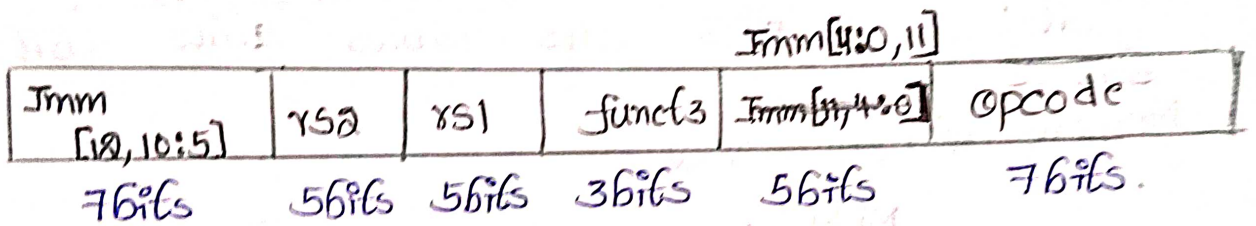 Imm[4:0,11]
Imm rs2 rs1 funct3 Imm[11,4:0] opcode
[12,10:5]
7bits 5bits 5bits 3bits 5bits 7bits.